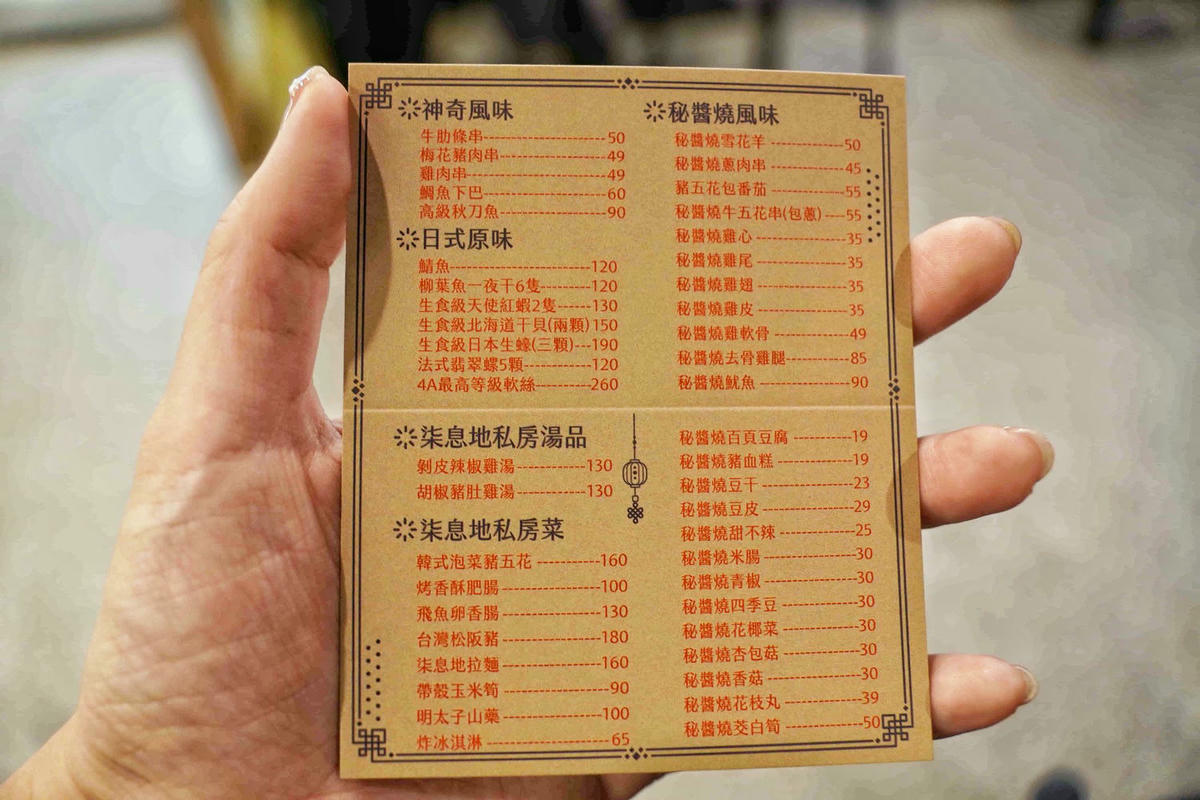 神奇風味
牛肋條串 50
梅花豬肉串 49
雞肉串 49
鯛魚下巴 60
高級秋刀魚 90
日式原味
鯖魚 120
柳葉魚一夜干6隻 120
生食級天使紅蝦2隻 130
生食級北海道干貝(兩顆)150
生食級日本生蠔(三顆) 190
法式翡翠螺5顆 120
4A最高等級軟絲 260
柒息地私房湯品
剝皮辣椒雞湯 130
胡椒豬肚雞湯 130
柒息地私房菜
韓式泡菜豬五花 160
烤香酥肥腸 100
飛魚卵香腸 130
台灣松阪豬 180
柒息地拉麵 160
帶殼玉米筍 90
明太子山藥 100
炸冰淇淋 65
秘醬燒風味
秘醬燒雪花羊 50
秘醬燒蔥肉串 45
豬五花包番茄 55
秘醬燒牛五花串(包蔥) 55
秘醬燒雞心 35
秘醬燒雞尾 35
秘醬燒雞翅 35
秘醬燒雞皮 35
秘醬燒雞軟骨 49
秘醬燒去骨雞腿 85
秘醬燒魷魚 90
秘醬燒百頁豆腐 19
秘醬燒豬血糕 19
秘醬燒豆干 23
秘醬燒豆皮 29
秘醬燒甜不辣 25
秘醬燒米腸 30
秘醬燒青椒 30
秘醬燒四季豆 30
秘醬燒花椰菜 30
秘醬燒杏包菇 30
秘醬燒香菇 30
秘醬燒花枝丸 39
秘醬燒茭白筍 50